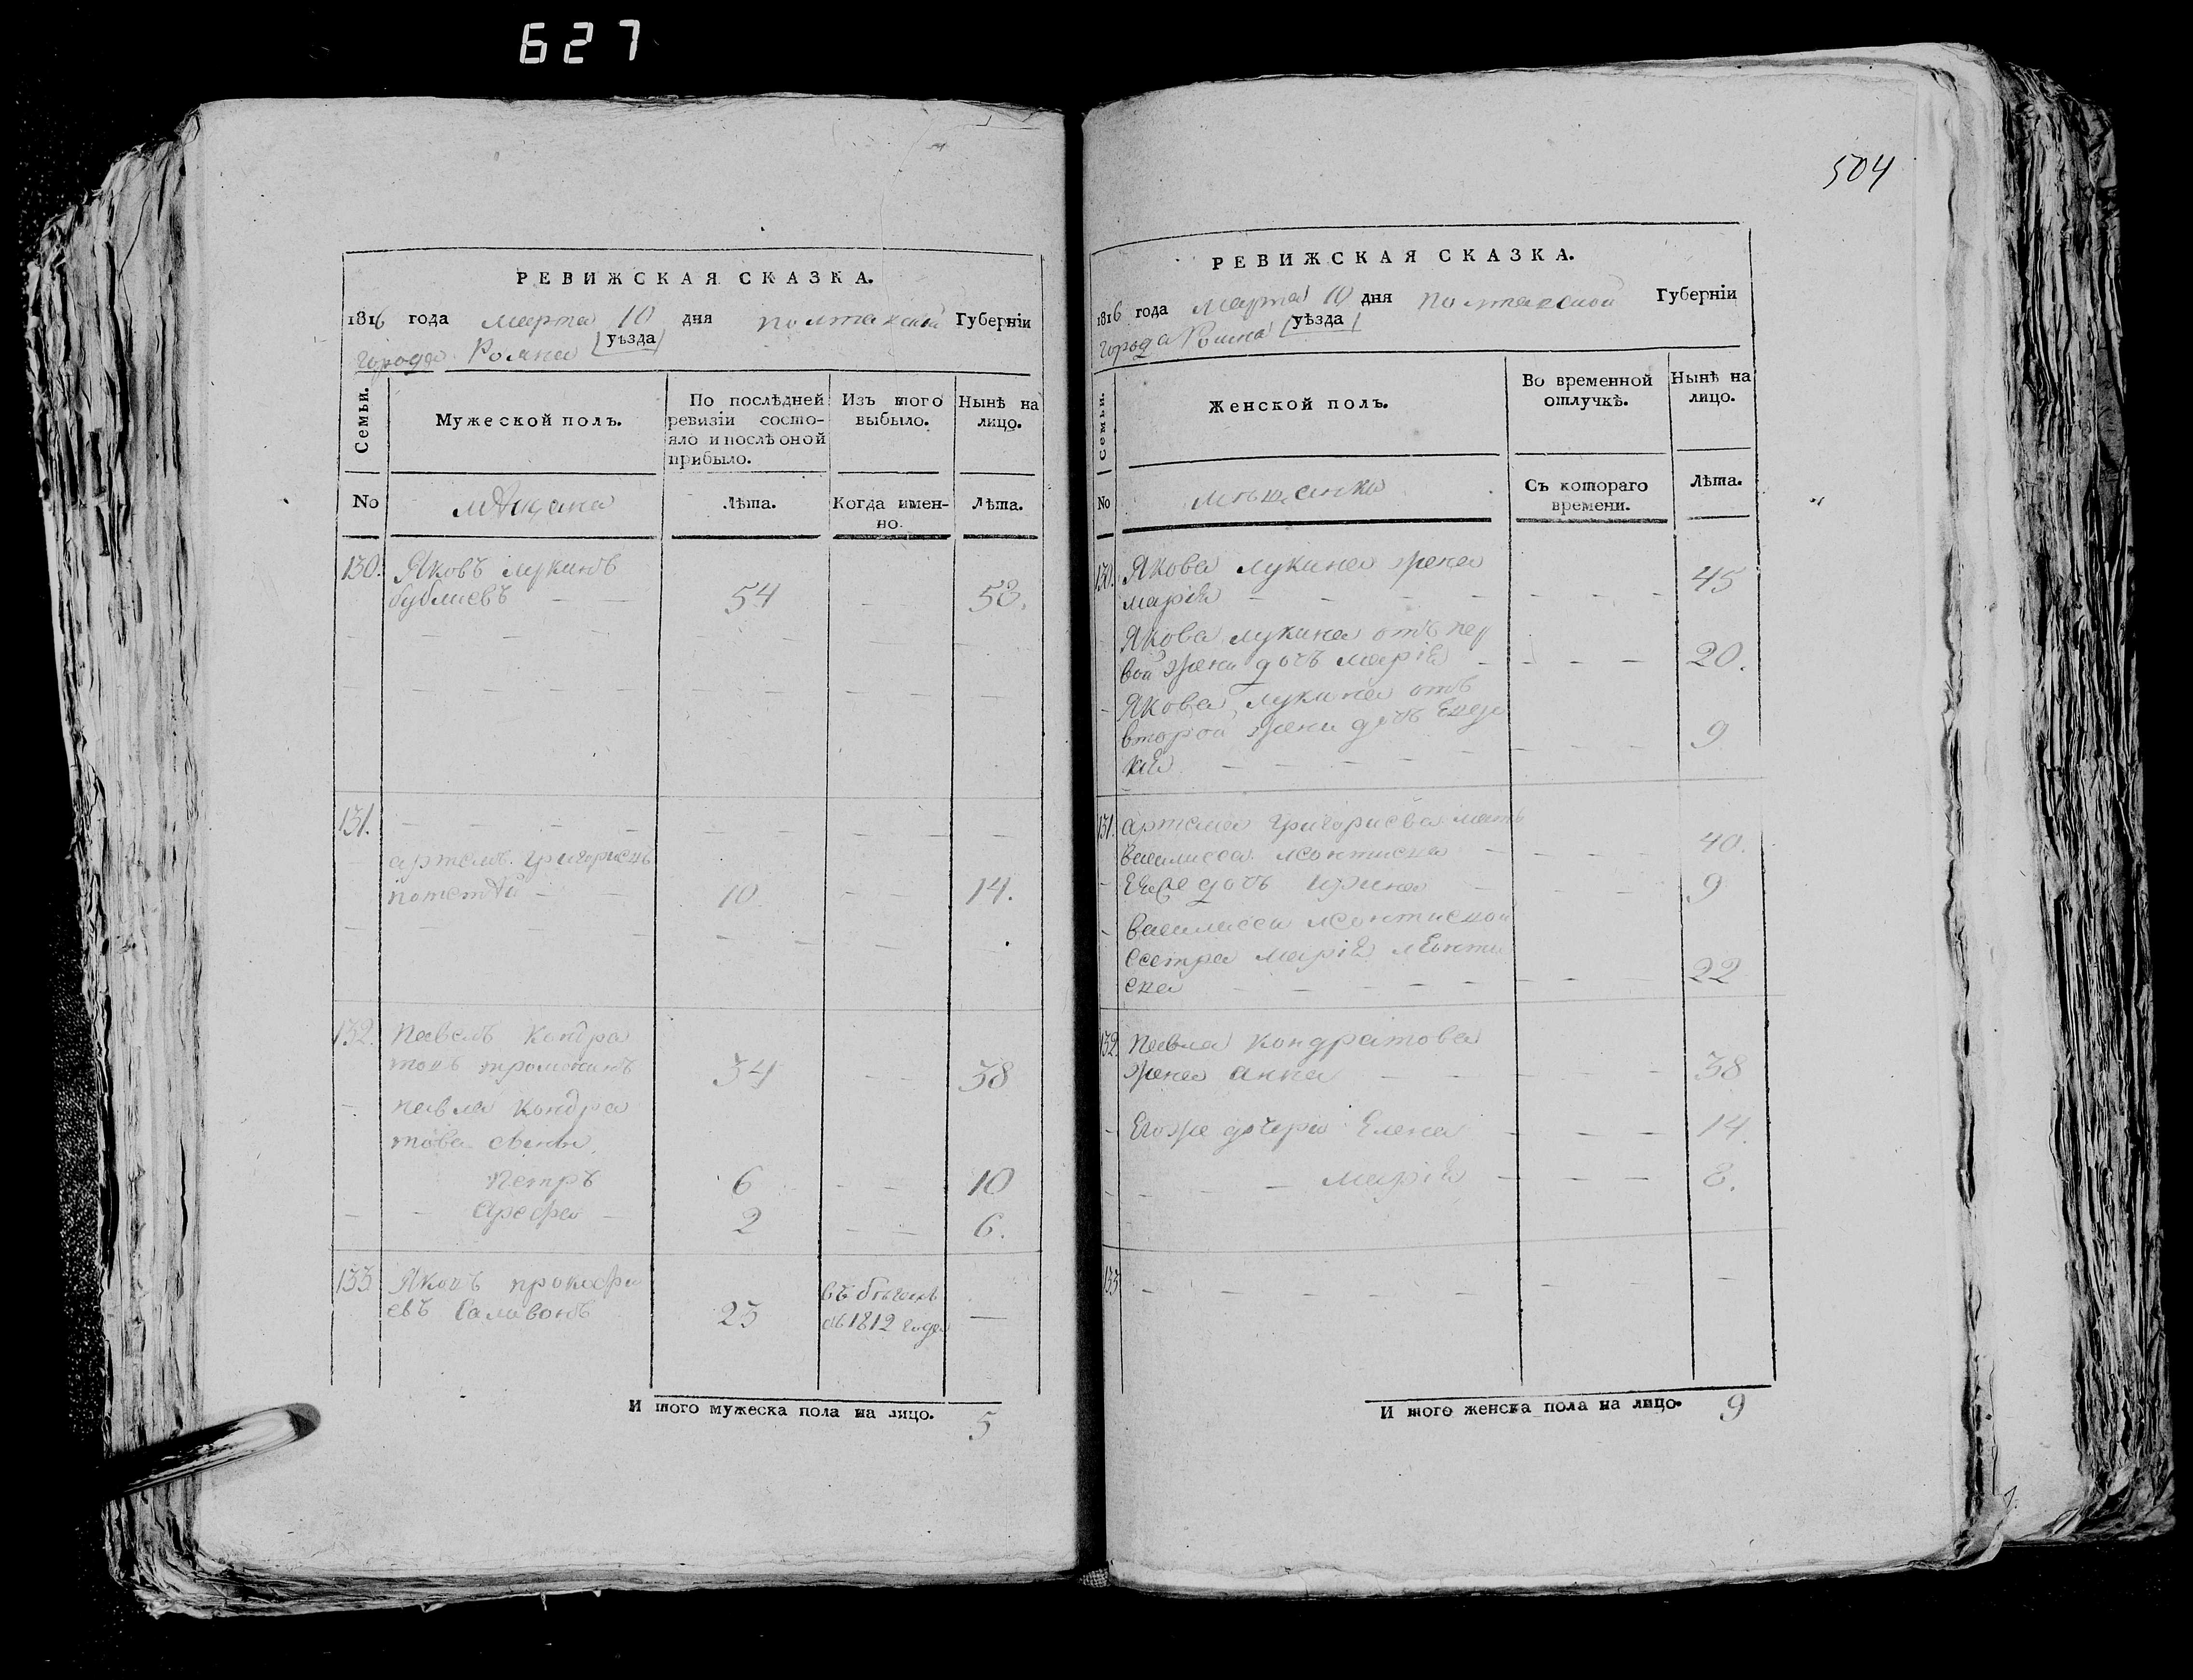 627
РЕВИЖСКАЯ СКАЗКА.
1816 года марта 10 дня полтавской Губерніи
города Ромна уѣзда
Семьи.
Мужеской полъ.
По послѣдней
ревизіи состо-
яло и послѣ оной
прибыло.
Изъ того
выбыло.
Нынѣ на
лицо.
No
мѣщане
Лѣта.
Когда имен-
но.
Лѣта.
130. Яковъ лукинъ
бублиевъ 54 58.
131.
артемъ григориевъ
10. 14.
132. павелъ кондра
товъ 34 38
павла кондра
това сыны
петръ 6 10
арефа 2 6.
133 Яковъ прокофи
евъ Саливонъ 23
въ бегахъ
съ 1812 года
И того мужеска пола на лицо. 5
504
РЕВИЖСКАЯ СКАЗКА.
1816 года марта 10 дня полтавской Губерніи
города Ромна уѣзда
Семьи.
Женской полъ.
Во временной
отлучкѣ.
Нынѣ на
лицо.
No
мѣщанки
Съ котораго
времени.
Лѣта.
130. Якова лукина жена
марія 45
Якова лукина отъ пер
вой жени дочъ марія 20.
Якова лукина отъ
второй жени дочъ
9
131. артема григориева мать
василисса 40.
Ее же дочъ ирина 9
василисси
сестра марія
22
132 павла кондратова
жена анна 38
Егоже дочери Елена 14.
марія 8.
133
И того женска пола на лицо. 9